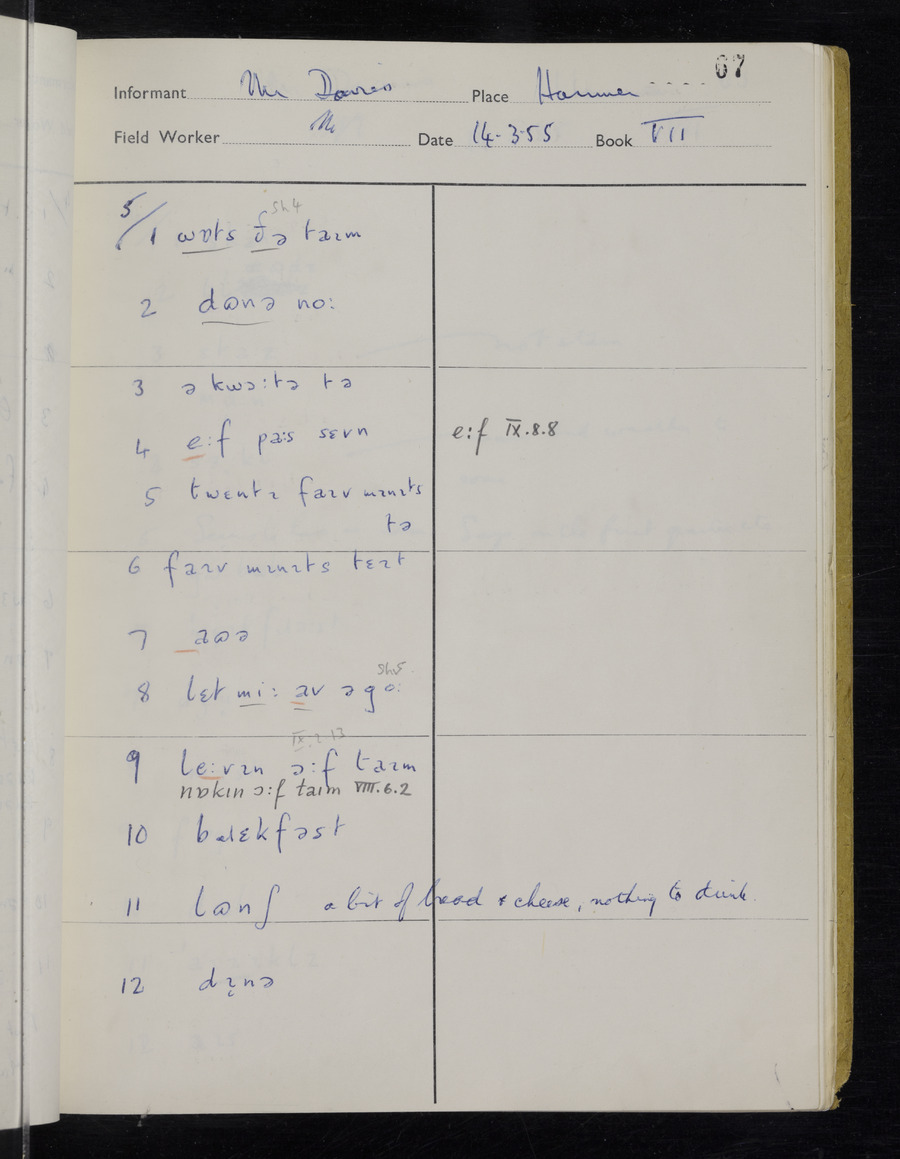 67
Informant Mr Davies Place Hanmer
Field Worker Date 14-3-55 Book VII
5/1 wɒts ðə taɪm
Sh4
2 dɷnə no:
3 ə kwɔ:tə tə
4 e:f pa:s sɛvn e:f IX.8.8
5 twentɪ faɪv mɪnɪts
tə
6 faɪv mɪnɪts tɛɪt
7 aɷə
8 lɛt mi: av əgo: Sh5
IX.2.13
9 le:vɪn ɔ:f taɪm
nɒkɪn ɔ:f taɪm VIII.6.2
10 bɹɛkfəst
11 lɷnʃ a bit of bread & cheese, nothing to drink.
12 dɪ̣nə